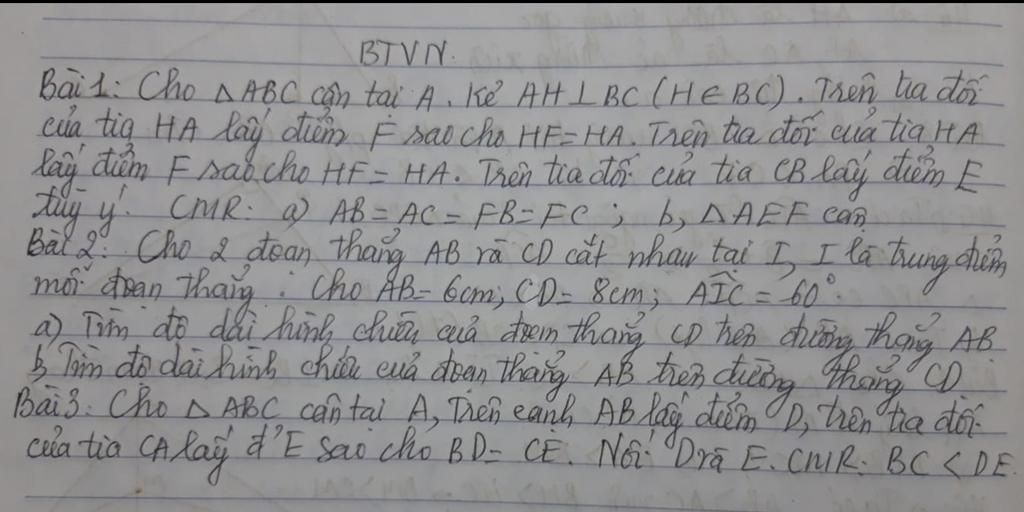 BTVN.
Bài 1: Cho △ABC cân tại A. Kẻ AH⊥BC (H∈BC). Trên tia đối
của tia HA lấy điểm F sao cho HF=HA. Trên tia đối của tia HA
lấy điểm F sao cho HF=HA. Trên tia đối của tia CB lấy điểm E
tùy ý. CMR: a) AB=AC=FB=FC; b, △AEF cân
Bài 2: Cho 2 đoạn thẳng AB và CD cắt nhau tại I, I là trung điểm
mỗi đoạn thẳng. Cho AB=6cm; CD=8cm; AIC=60°.
a) Tìm độ dài hình chiếu của đoạn thẳng CD trên đường thẳng AB
b, Tìm độ dài hình chiếu của đoạn thẳng AB trên đường thẳng CD
Bài 3: Cho △ABC cân tại A, Trên cạnh AB lấy điểm D, trên tia đối
của tia CA lấy đ' E sao cho BD=CE. Nối D và E. CMR: BC<DE.